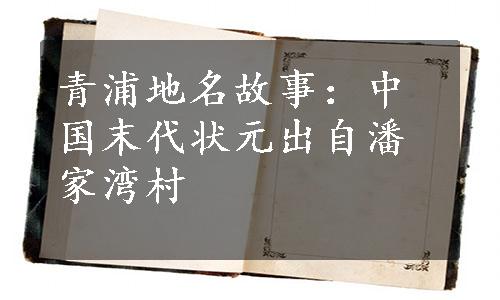 青浦地名故事：中
国末代状元出自潘
家湾村